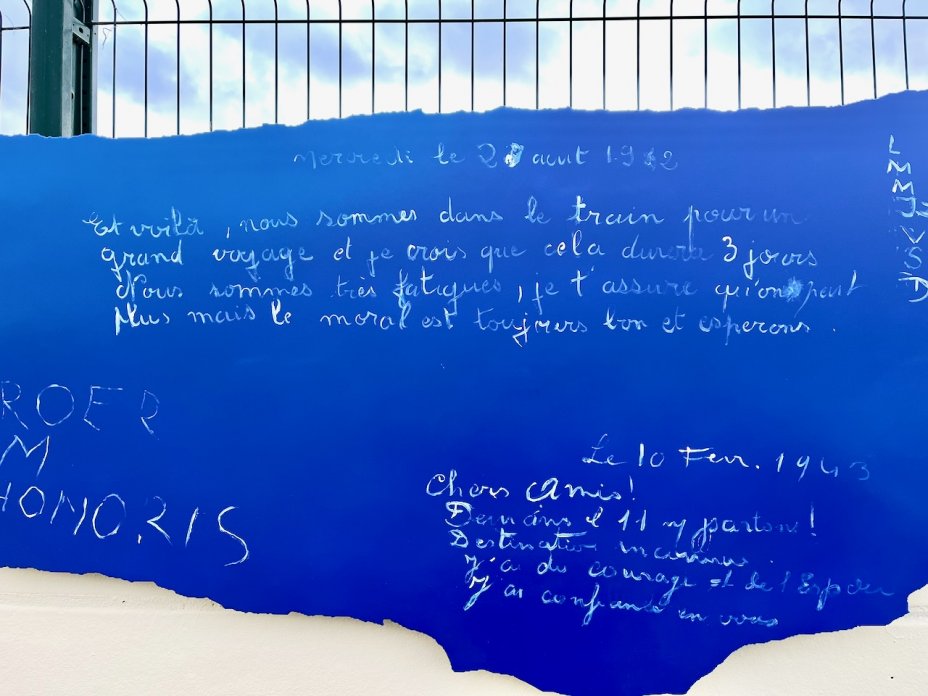 Mercredi le 2 aout 1942
Et voilà, nous sommes dans le train pour un
grand voyage et je crois que cela durera 3 jours
Nous sommes très fatigués, je t'assure qu'on peut
plus mais le moral est toujours bon et esperons.
L
M
M
J
V
S
D
ROER
M
HONORIS
Le 10 Fevr. 1943
Chers Amis!
Demain le 11 nous partons!
Destination inconnue.
J'ai du courage et de l'Espoir
J'ai confiance en vous